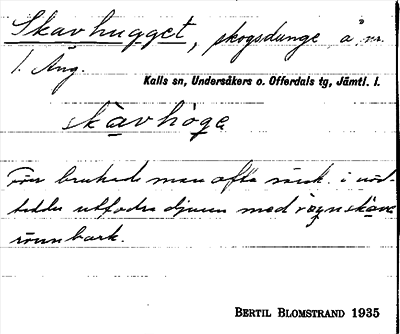 Skavhugget, skogsdunge å nr
1. Äng.
Kalls sn, Undersåkers o. Offerdals tg, Jämtl. l.
skavhöge
Förr brukade man ofta i nöd-
utfodra djuren med
rönnbark.
BERTIL BLOMSTRAND 1935